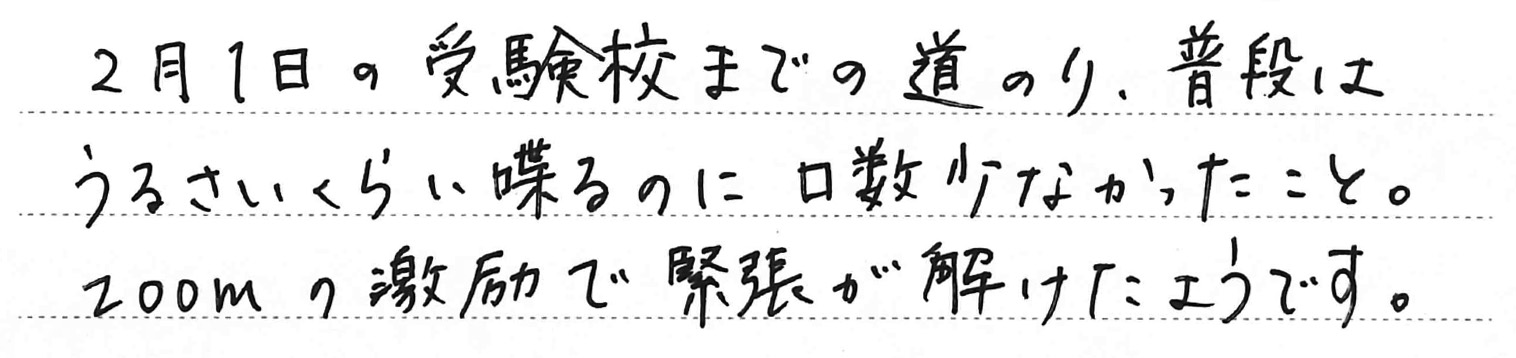 2月1日の受験校までの道のり、普段は
うるさいくらい喋るのに口数少なかったこと。
zoomの激励で緊張が解けたようです。